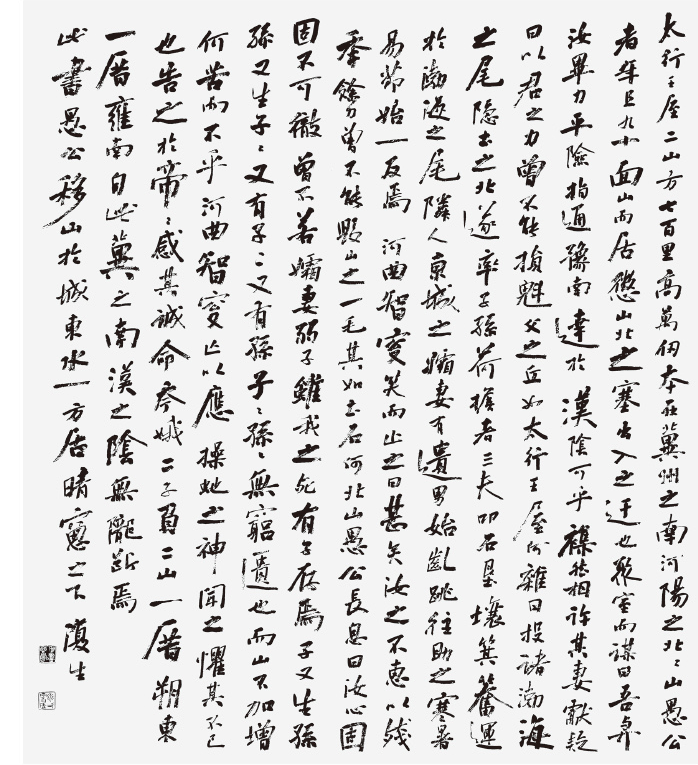 太行王屋二山方七百里高萬仞本在冀州之南河陽之北〻山愚公
者年且九十面山而居懲山北之塞出入之迂也聚室而謀曰吾與
汝畢力平險指通豫南達於漢陰可乎襍然相許其妻獻疑
曰以君之力曾不能損魁父之丘如太行王屋何雜曰投諸渤海
之尾隐土之北遂率子孫荷擔者三夫叩石墾壤箕畚運
於渤海之尾隣人京城之孀妻有遺男始齔跳往助之寒暑
易節始一反焉河曲智叟笑而止之曰甚矣汝之不惠以殘
年餘力曾不能毀山之一毛其如土石何北山愚公長息曰汝心固
固不可徹曾不若孀妻弱子雖我之死有子存焉子又生孫
孫又生子〻又有子〻又有孫子〻孫〻無窮匱也而山不加增
何苦而不平河曲智叟亡以應操虵之神聞之懼其不已
也告之於帝〻感其誠命夸娥二子負二山一厝朔東
一厝雍南自此冀之南漢之陰無隴斷焉
此書愚公移山於城東水一方居晴窗之下生